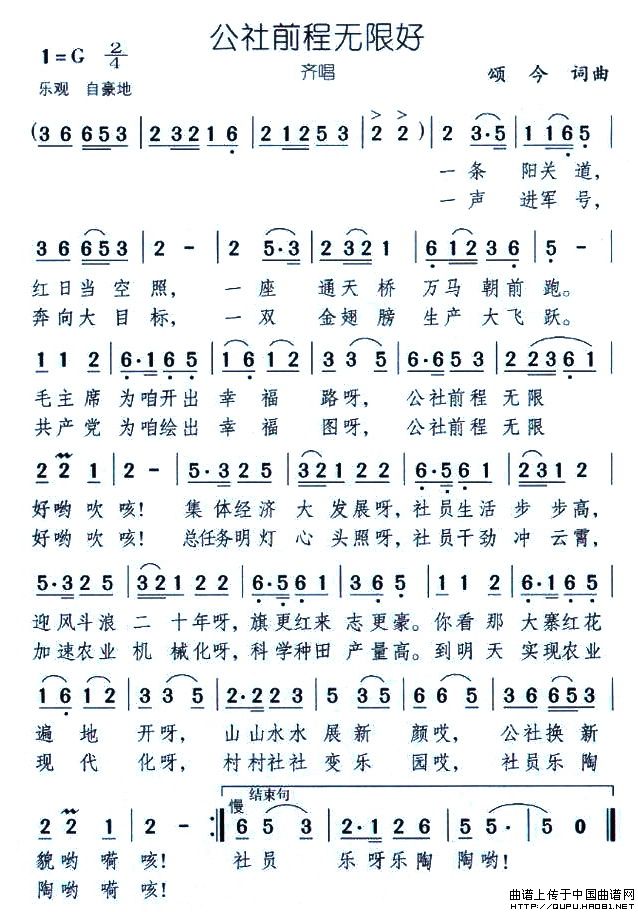 公社前程无限好
1=G 2/4
齐唱
颂今 词曲
乐观 自豪地
(3 6 6 5 3 | 2 3 2 1 6 | 2 1 2 5 3 | 2 2) | 2 3·5 | 1 1 6 5 |
一条 阳关道,
一声 进军号,
3 6 6 5 3 | 2 - | 2 5·3 | 2 3 2 1 | 6 1 2 3 6 | 5 - |
红日当空照, 一座 通天桥 万马朝前跑。
奔向大目标, 一双 金翅膀 生产大飞跃。
1 1 2 | 6·1 6 5 | 1 6 1 2 | 3 3 5 | 6·6 5 3 | 2 2 3 6 1 |
毛主席 为咱开出 幸福 路呀, 公社前程 无限
共产党 为咱绘出 幸福 图呀, 公社前程 无限
2 2 1 | 2 - | 5·3 2 5 | 3 2 1 2 2 | 6·5 6 1 | 2 3 1 2 |
好哟吹咳! 集体经济 大发展呀, 社员生活 步步高,
好哟吹咳! 总任务明灯 心头照呀, 社员干劲 冲云霄,
5·3 2 5 | 3 2 1 2 2 | 6·5 6 1 | 3 6 5 | 1 1 2 | 6·1 6 5 |
迎风斗浪 二十年呀, 旗更红来 志更豪。你看那 大寨红花
加速农业 机械化呀, 科学种田 产量高。到明天 实现农业
1 6 1 2 | 3 3 5 | 2·2 2 3 | 5 6 1 | 6 5 3 | 3 6 6 5 3 |
遍地 开呀, 山山水水 展新 颜哎, 公社换新
现代 化呀, 村村社社 变乐 园哎, 社员乐陶
慢 结束句
2 2 1 | 2 - :| 6 5 3 | 2·1 2 6 | 5 - | 5 0 ||
貌哟嗬咳! 社员 乐呀乐陶陶哟!
陶哟嗬咳!
曲谱上传于中国曲谱网
HTTP://QUPU.HAO81.NET